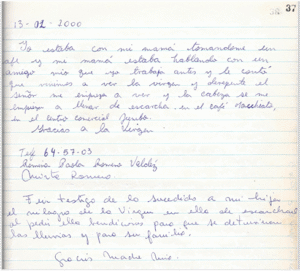 37
13-02-2000
Yo estaba con mi mamá tomandome un
café y mi mamá estaba hablando con un
amigo mío que yo trabajo antes y le conté
que vinimos a ver la virgen y de repente el
señor me empieza a ver y la cabeza se me
empieza a llenar de escarcha. en el café Macchiato,
en el centro comercial
Gracias a la Virgen.
Telf 64-57-03
Paola Romero
Quinta Romeiro
Fui testigo de lo sucedido a mi hija
el milagro de la Virgen en ella de escarcharla
al pedir ella bendiciones para que se detuvieran
las lluvias y para su familia.
Gracias Madre Mía.